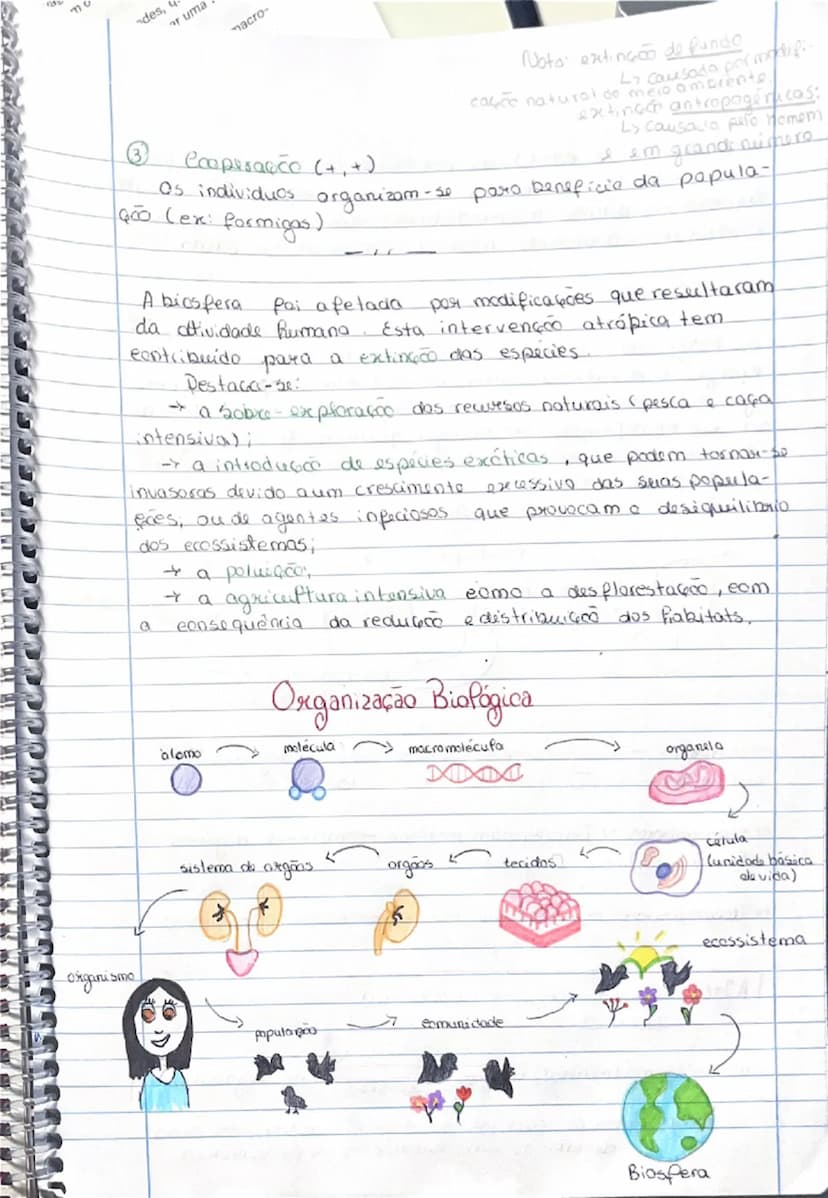 ades, u-
ar uma
macro-
Nota: extinção de fundo
↳ causada por modifi-
cação natural do meio ambiente.
extinção antropogénicas:
↳ causada pelo homem
e em grande número
③ Cooperação (+,+)
Os individuos organizam-se para beneficio da popula-
ção (ex: formigas)
A biosfera foi afelada por modificações que resultaram
da atividade humana. Esta intervenção atrópica tem
contribuido para a extinção das espécies.
Destaca-se:
→ a sobre-exploração dos recursos naturais (pesca e caça
intensiva);
→ a introdução de espécies exóticas, que podem tornar-se
invasoras devido a um crescimento excessivo das suas popula-
ções, ou de agentes infeciosos que provocam o desiquilibrio
dos ecossistemas;
→ a poluição;
→ a agricultura intensiva como a desflorestação, com
a consequência da redução e distribuição dos habitats.
Organização Biológica
átomo
molécula
macromolécula
organelo
célula
(unidade básica
da vida)
tecidos
orgãos
sistema de orgãos
organismo
população
comunidade
ecossistema
Biosfera